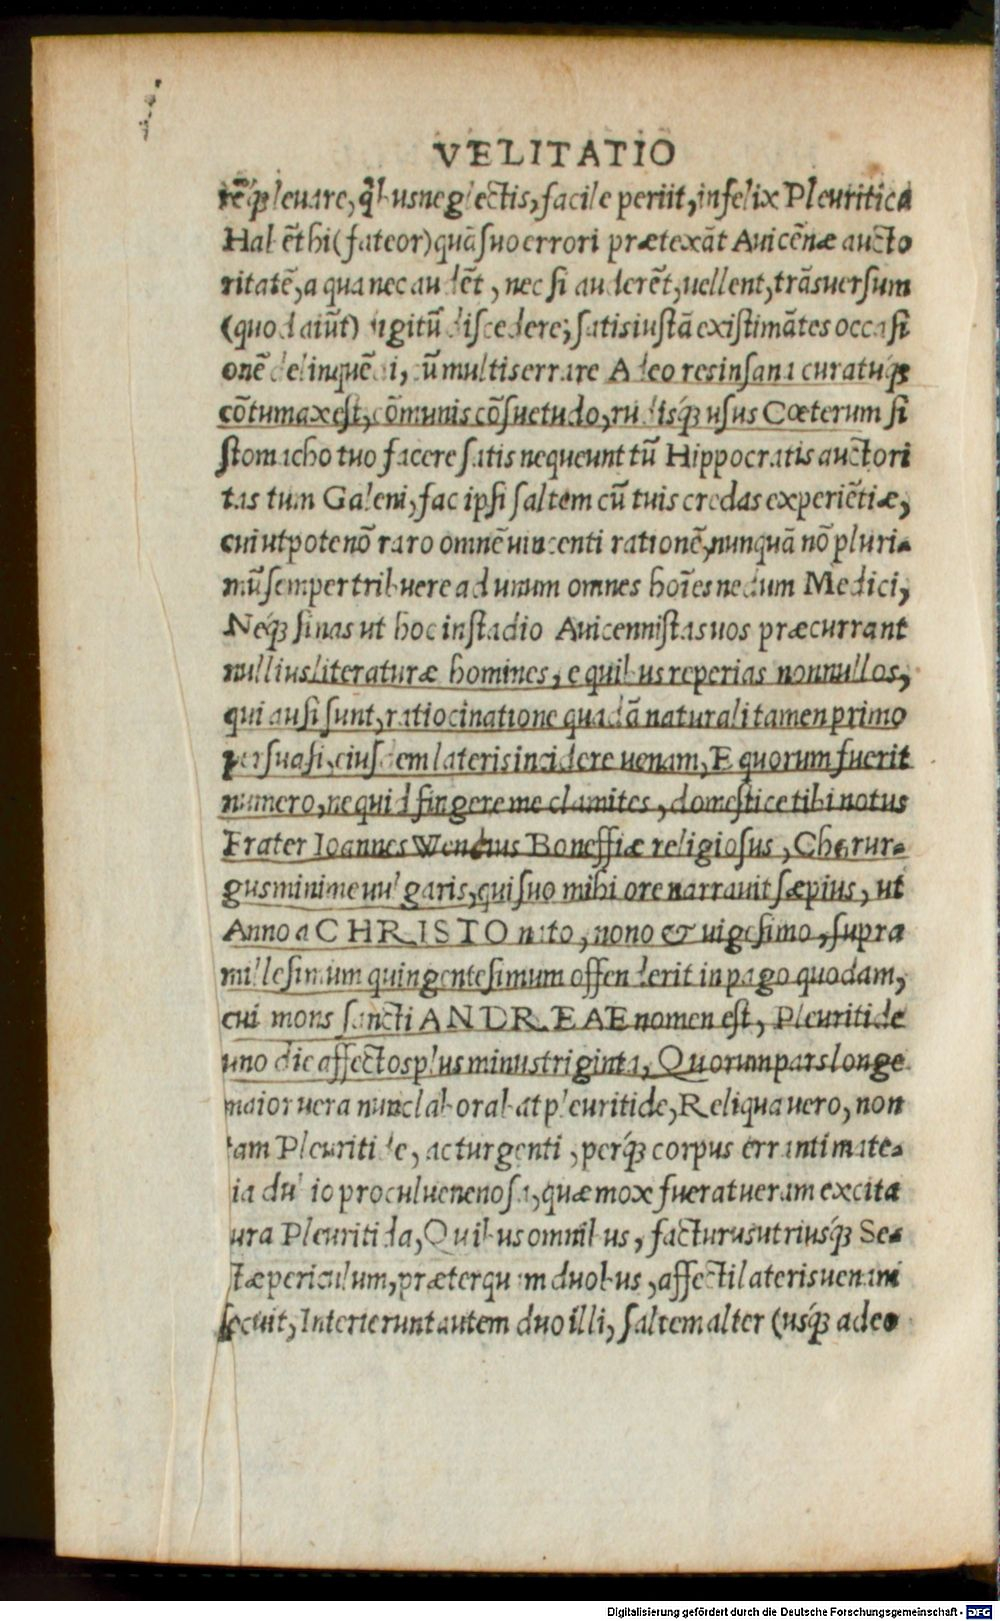 VELITATIO
rēq́ꝫ leuare, q̄bus neglectis, facile periit, infelix Pleuritica
Habēt hi (fateor) quā suo errori prætexāt Auicēnæ aucto
ritatē, a qua nec audēt, nec si auderēt, uellent, trāsuersum
(quod aiūt) digitū discedere, satis iustā existimātes occasi
onē delinquēdi, cū multis errare Adeo res insana curatuq́ꝫ
cōtumax est, cōmunis cōsuetudo, rudisq́ꝫ usus Cœterum si
stomacho tuo facere satis nequeunt tū Hippocratis auctori
tas tum Galeni, fac ipsi saltem cū tuis credas experiētiæ,
cui utpote nō raro omnē uincenti rationē, nunquā nō pluri-
mū semper tribuere ad unum omnes hoīes nedum Medici,
Neq́ꝫ sinas ut hoc in stadio Auicennistas uos præcurrant
nullius literaturæ homines, e quibus reperias nonnullos,
qui ausi sunt, ratiocinatione quadā naturali tamen primo
persuasi, eiusdem lateris incidere uenam, E quorum fuerit
numero, ne quid fingere me clamites, domestice tibi notus
Frater Ioannes Boneffiæ religiosus, Cherur-
gus minime uulgaris, qui suo mihi ore narrauit sæpius, ut
Anno a CHRISTO nato, nono & uigesimo, supra
millesimum quingentesimum offenderit in pago quodam,
cui mons sancti ANDREAE nomen est, Pleuritide
uno die affectos plus minus triginta, Quorum pars longe
maior uera nunc laborabat pleuritide, Reliqua uero, non
tam Pleuritide, ac turgenti, perq́ꝫ corpus erranti mate-
ia dubio procul uenenosa, quæ mox fuerat ueram excita
ura Pleuritida, Quibus omnibus, facturus utriusq́ꝫ Se-
tæ periculum, præterquam duobus, affecti lateris uenam
secuit, Interierunt autem duo illi, saltem alter (usq́ꝫ adeo
Digitalisierung gefördert durch die Deutsche Forschungsgemeinschaft - DFG